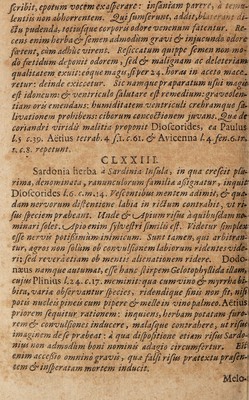 scribit, epotum vocem exasperare: insaniam parere, à temu-
lentis non abhorrentem. Qui sumserunt, addit, blaterant di-
ctu pudenda, totiusque corporis odore veneum fatentur. Re-
cens enim herba & semen admodum gravi & injucundo odore
fœtent, eum adhuc virent. Resiccatum quippe semen non mo-
do fœtidum deponit odorem, sed & malignam ac deleteriam
qualitatem exuit: eoque magis, si per 24. horas in aceto mace-
retur: deinde exiccetur. Sic namque præparatum usui magis
est idoneum & ventriculo salutare est remedium: graveolen-
tiam oris emendans: humiditatem ventriculi crebramque sa-
livationem prohibens: ciborum concoctionem juvans. Qua de
coriandri viridis malitia preponit Dioscorides, ea Paulus
l.5 c.39. Aëtius tetrab. 4 s.1. c.61. & Avicenna l.4 fen.6.tr.
1.c.8. repetunt.
CLXXIII.
Sardonia herba à Sardinia Insula, in qua crescit pla-
rima, denominata, ranunculorum familia assignatur, inquit
Dioscorides l.6.c.m.14. Vescentibus mentem adimit, & quo-
dam nervorum distentione labia in rictum contrahit, ut ri-
sus speciem præbeant. Unde & Apium risus à quibusdam no-
minari solet. Apio enim sylvestri similis est. Videtur simplex
esse nervis potissimum inimicum. Sunt tamen, qui arbitran-
tur, ægros non solum ob convulsionem labiorum ridentes vide-
ri: sed reverâ etiam ob mentis alienationem ridere. Dodo-
næus namque autumat, esse hanc stirpem Gelotophyllida illam,
cujus Plinius l.24. c.17. meminit: qua cum vino & myrrha bi-
bitu, varia observantur species, ridendique finis non sit, nisi
potis nucleis pineis cum pipere & melle in vino palmeo. Aëtius
priorem sequitur rationem: inquiens, herbam potatam furo-
rem & convulsiones inducere, malasque contrahere, ut risus
imaginem de se præbeat: à qua dispositione etiam risus Sardo-
nius non admodum boni nominis adagio circumfertur. Est
enim accessio omnino gravis, qua falsi risus prætextu præsen-
tem & insperatam mortem inducit.
Melo-